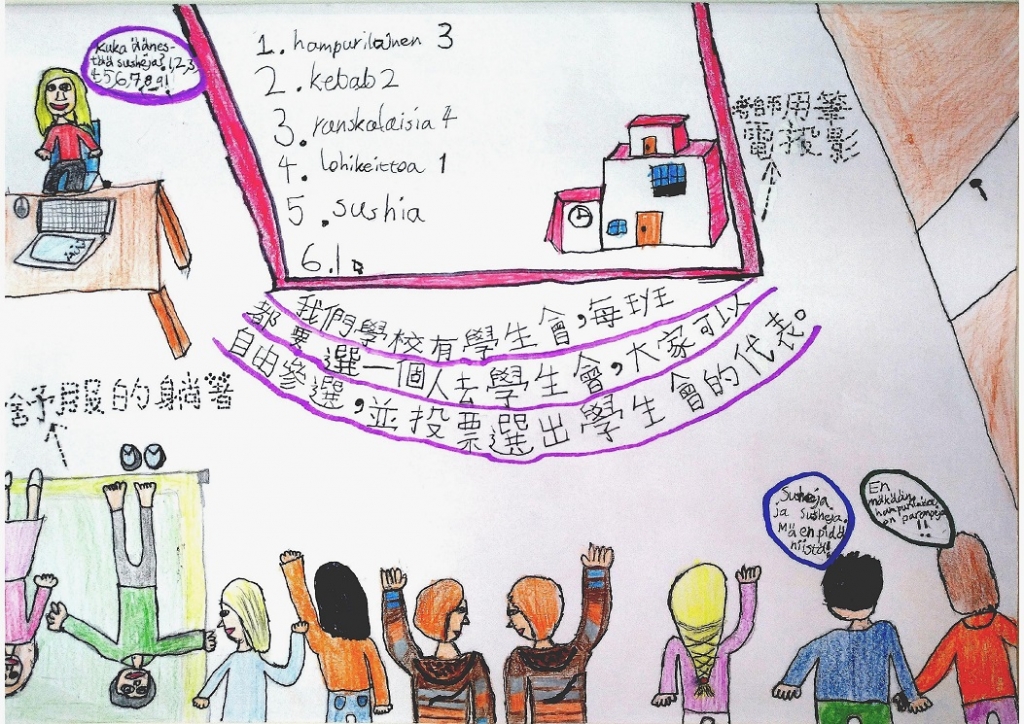 Kuka äänes-
tää susheja? 1,2,3,
4 5 6, 7, 8, 9!
1. hampurilainen 3
2. kebab 2
3. ranskalaisia 4
4. lohikeittoa 1
5. sushia
6. 1
老師用筆
電投影
我們學校有學生會，每班
都要選一個人去學生會，大家可以
自由參選，並投票選出學生會的代表。
舒服的躺著
Susheja
ja susheja.
Mä en pidä
niistä!
En
mäkään,
on parempia
!!